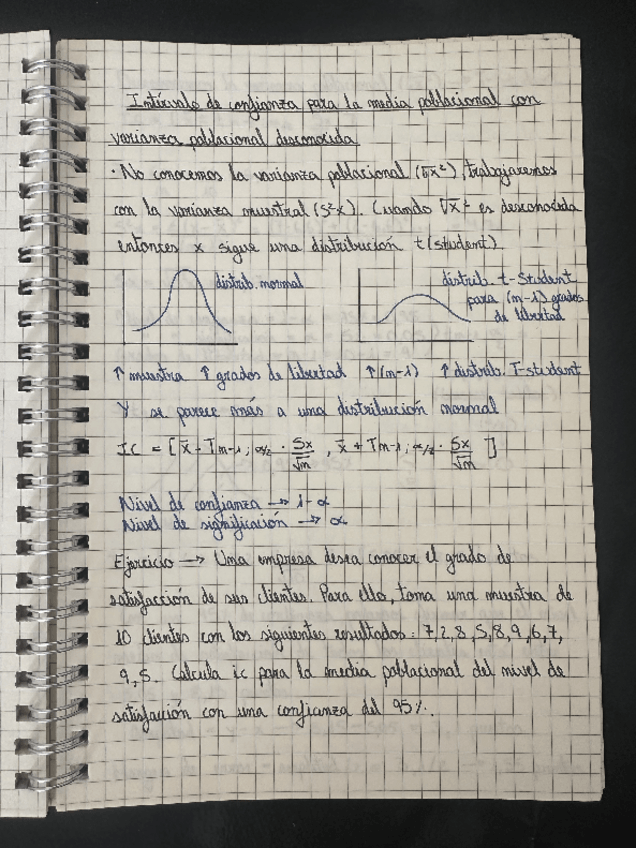 Intervalo de confianza para la media poblacional con
varianza poblacional desconocida
· No conocemos la varianza poblacional (σx²), trabajaremos
con la varianza muestral (S²x). Cuando σx² es desconocida
entonces x sigue una distribución t (student).
distrib. normal
distrib. t-Student
para (n-1) grados
de libertad
↑ muestra ↑ grados de libertad ↑(n-1) ↑ distrib. T-student
Y se parece más a una distribución normal
IC = [x̄ - Tn-1; α/2 · Sx/√n , x̄ + Tn-1; α/2 · Sx/√n ]
Nivel de confianza → 1-α
Nivel de significación → α
Ejercicio → Una empresa desea conocer el grado de
satisfacción de sus clientes. Para ello, toma una muestra de
10 clientes con los siguientes resultados: 7,2,8,5,8,9,6,7,
9,5. Calcula ic para la media poblacional del nivel de
satisfacción con una confianza del 95%.